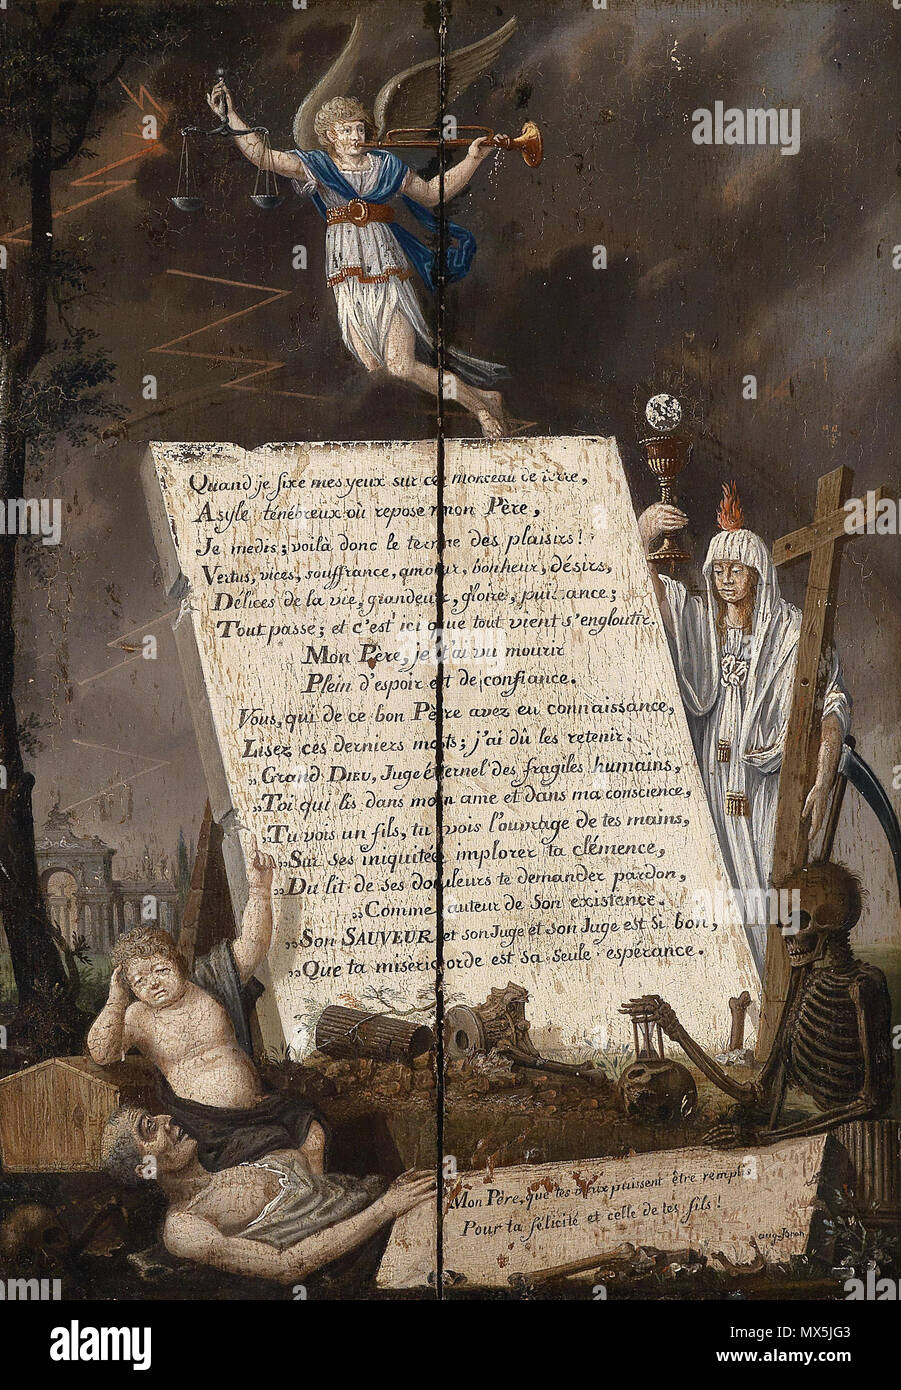 Quand je fixe mes yeux sur ce morceau de ivrie,
Asyle ténébreux où repose mon Père,
Je medis; voilà donc le terme des plaisirs!
Vertus, vices, souffrance, amour, bonheur, désirs,
Délices de la vie, grandeur, gloire, puissance;
Tout passe; et c'est ici que tout vient s'engloutir.
Mon Père, je t'ai vu mourir
Plein d'espoir et de confiance.
Vous, qui de ce bon Père avez eu connaissance,
Lisez ces derniers mots; j'ai dû les retenir.
„Grand DIEU, Juge éternel des fragiles humains,
„Toi qui lis dans mon ame et dans ma conscience,
„Tu vois un fils, tu vois l'ouvrage de tes mains,
„Sur ses iniquités implorer ta clémence,
„Du lit de ses douleurs te demander pardon,
„Comme auteur de son existence.
„Son SAUVEUR et son Juge et son Juge est si bon,
„Que ta miséricorde est sa seule espérance.
Mon Père, que tes vœux puissent être remplis
Pour ta félicité et celle de tes fils!
alamy
Image ID: MX5JG3
www.alamy.com